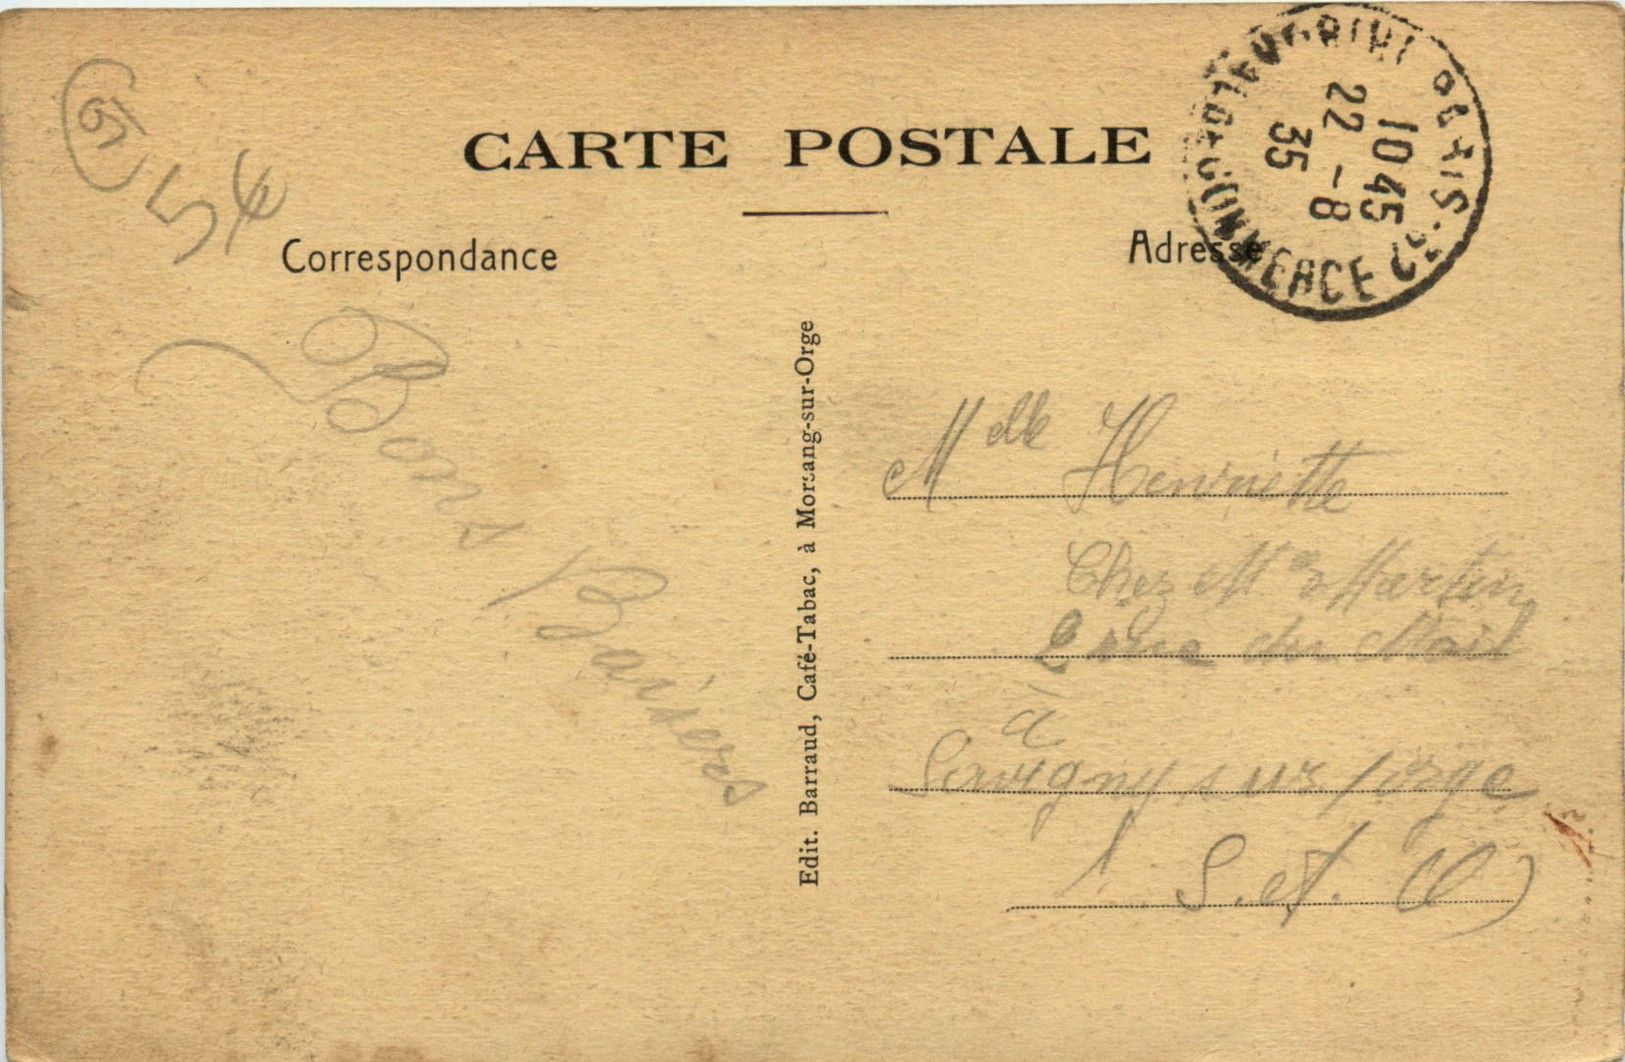 91
54
CARTE POSTALE
Correspondance
Adresse
PARIS
10 45
22 - 8
35
COMMERCE
Bons Baisers
Edit. Barraud, Café-Tabac, à Morsang-sur-Orge
Melle Henriette
Chez Mme Martin
rue du Mail
à
Savigny sur /orge
(S. et. O)